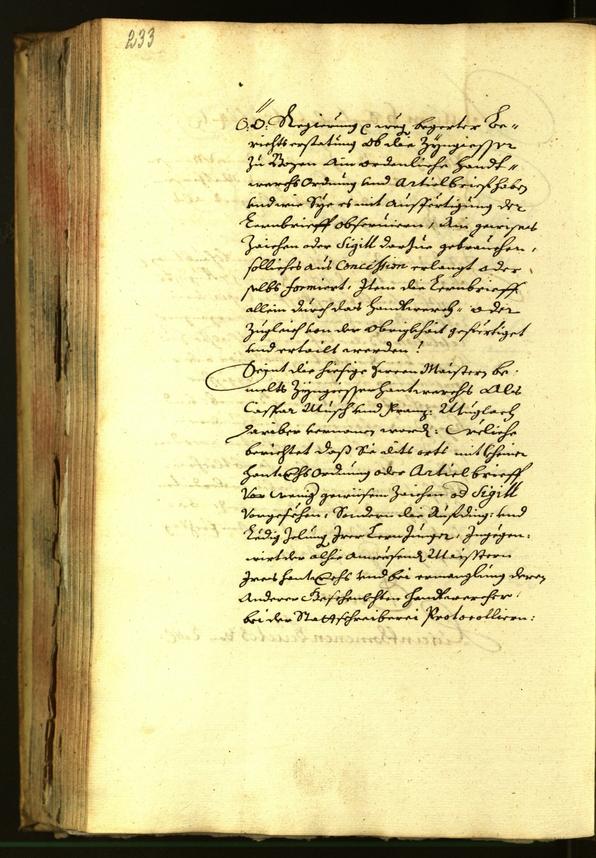 233
O: Ö: Regierung etc. weg. begerter Be¬
richts erstatung ob die Zyngiesser
zu Bozen ain ordenliche Handt¬
werchs Ordnung und Articl brieff haben
und wie Sye es mit Aussfertigung der
Lernbrieff observieren, Ain gewises
Zaichen oder Sigill darzue gebrauchen,
solliches aus Concession erlangt oder
selbs formiert. Item die Lernbrieff
allein durch das Handtwerch oder
zugleich von der Obrigkhait gefertiget
und ertailt werden!
Seynt die hiesige Herren Maistern be¬
melts Zyngiesser Hantwerchs Als
Caspar Müsch und Franz: Miglach
hariber vernomen word: welliche
berichtet daß Sie dits orts mit kheiner
Hantwerchs Ordnung oder Articl brieff
vor wenig gewisem Zaichen od Sigill
versechen, Sondern die Aufding: und
Ledig Zelung Irer Lern Junger, In gegen¬
wirt der alhie Anwesend Maistern
Ires hantwerchs und bei ermanglung deren
Anderer Geschenkhten Handtwercher,
bei der Stattschreiberei Protocolliern: